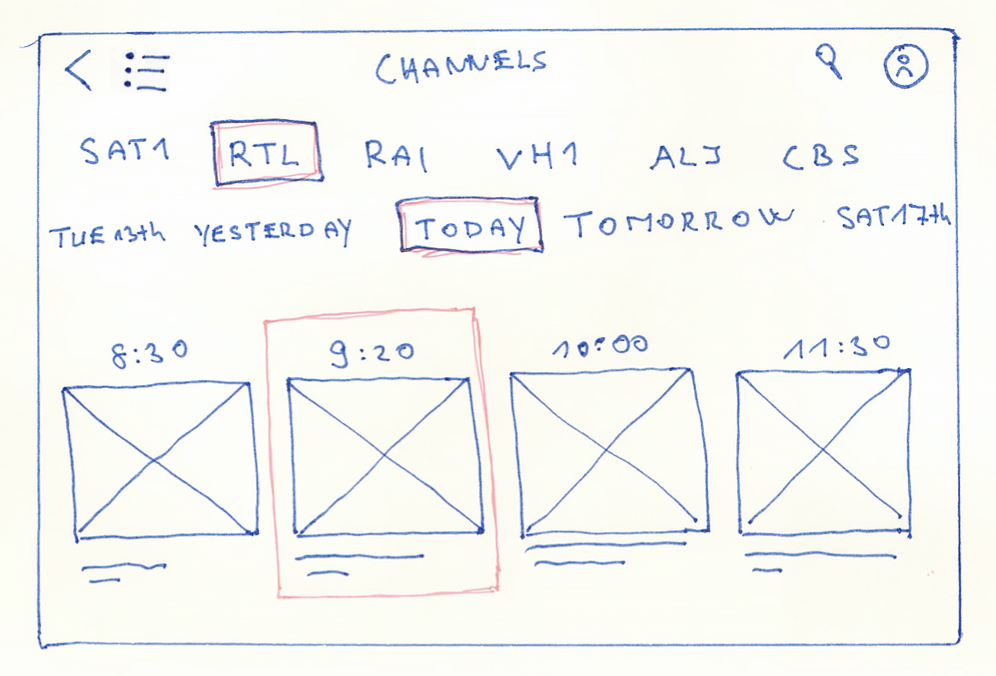 CHANNELS
SAT1 RTL RAI VH1 ALJ CBS
TUE 13th YESTERDAY TODAY TOMORROW SAT 17th
8:30 9:20 10:00 11:30